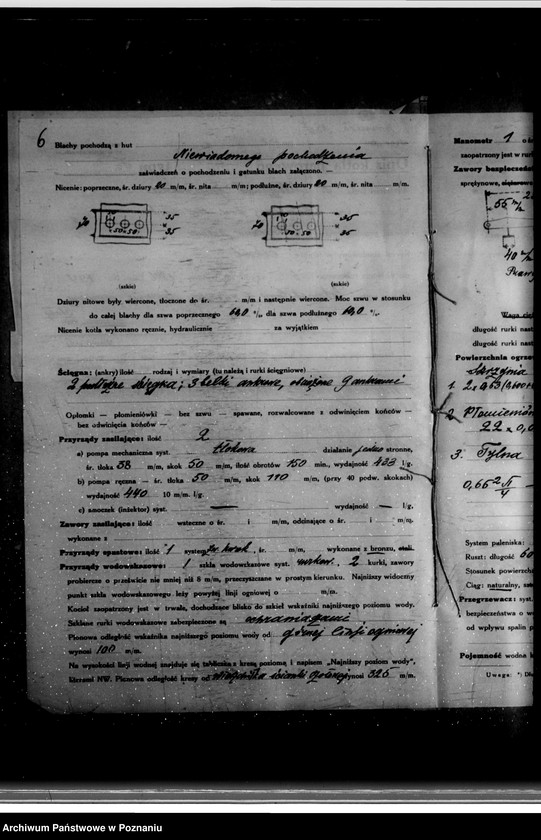 6
Blachy pochodzą z hut
Niewiadomego pochodzenia
zaświadczeń o pochodzeniu i gatunku blach załączono. —
Nicenie: poprzeczne, śr. dziury 20 m/m, śr. nita m/m; podłużne, śr. dziury 20 m/m, śr. nita m/m.
35
50 50
35
70
35
50 50
35
(szkic) (szkic)
Dziury nitowe były wiercone, tłoczone do śr. m/m i następnie wiercone. Moc szwu w stosunku
do całej blachy dla szwa poprzecznego 60,0 %, dla szwa podłużnego 60,0 %.
Nicenie kotła wykonano ręcznie, hydraulicznie za wyjątkiem
Ścięgna: (ankry) ilość rodzaj i wymiary (tu należą i rurki ścięgniowe)
3 ścięgna; 3 belki
Opłomki — płomieniówki — bez szwu — spawane, rozwalcowane z odwinięciem końców —
bez odwinięcia końców —
Przyrządy zasilające: ilość 2
a) pompa mechaniczna syst. tłokowa działanie jedno stronne,
śr. tłoka 58 m/m, skok 50 m/m, ilość obrotów 150 min., wydajność 423 l/g.
b) pompa ręczna — śr. tłoka 50 m/m, skok 110 m/m, (przy 40 podw. skokach)
wydajność 440 10 m/m. l/g.
c) smoczek (inżektor) syst. — wydajność — l/g.
Zawory zasilające: ilość wsteczne o śr. i m/m, odcinające o śr. i m/m,
wykonane z
Przyrządy spustowe: ilość 1 system kurek, śr. m/m, wykonane z bronzu, stali.
Przyrządy wodowskazowe: 1 szkła wodowskazowe syst. 2 kurki, zawory
probiercze o prześwicie nie mniej niż 8 m/m, przeczyszczane w prostym kierunku. Najniższy widoczny
punkt szkła wodowskazowego leży powyżej linji ogniowej o m/m.
Kocioł zaopatrzony jest w trwałe, dochodzące blisko do szkieł wskaźniki najniższego poziomu wody.
Szklane rurki wodowskazowe zabezpieczone są ochraniaczami
Pionowa odległość wskaźnika najniższego poziomu wody od górnej linji ogniowej
wynosi 100 m/m.
Na wysokości linji wodnej znajduje się tabliczka z kresą poziomą i napisem „Najniższy poziom wody",
literami NW. Pionowa odległość kresy od ścianki wynosi 325 m/m.
Manometr 1
zaopatrzony jest w rur
Zawory bezpieczeń
sprężynowe,
55 m/m
40
długość rurki nast
długość rurki nast
Powierzchnia ogrze
Skrzynia
1.
2. Płomienió
22 x 0,0
3. Tylna
System paleniska:
Ruszt: długość 60
Stosunek powierzch
Ciąg: naturalny, sztu
Przegrzewacz: syst.
bezpieczeństwa o w
od wpływu spalin p
Pojemność wodna k
Uwaga: *) Dla
Archiwum Państwowe w Poznaniu